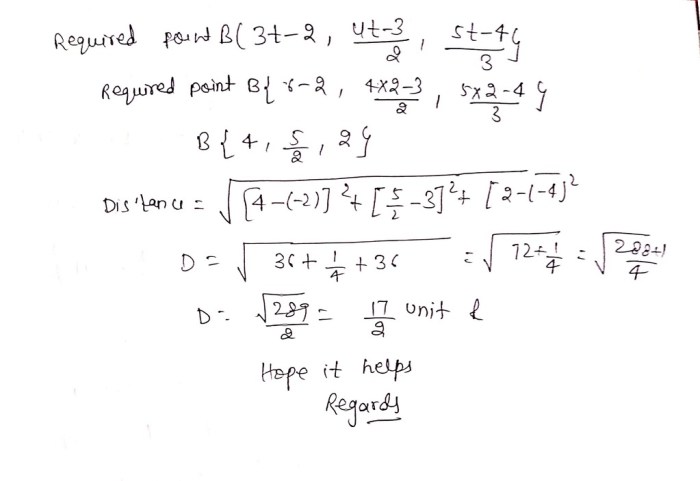 Required point B( 3t-2, (4t-3)/2, (5t-4)/3 }
Required point B{ 6-2, (4×2-3)/2, (5×2-4)/3 }
B { 4, 5/2, 2 }
Distance = √([4-(-2)]² + [5/2-3]² + [2-(-4)]²
D = √(36 + 1/4 + 36) = √(72+1/4) = √((288+1)/4)
D = √289/2 = 17/2 unit
Hope it helps
Regards